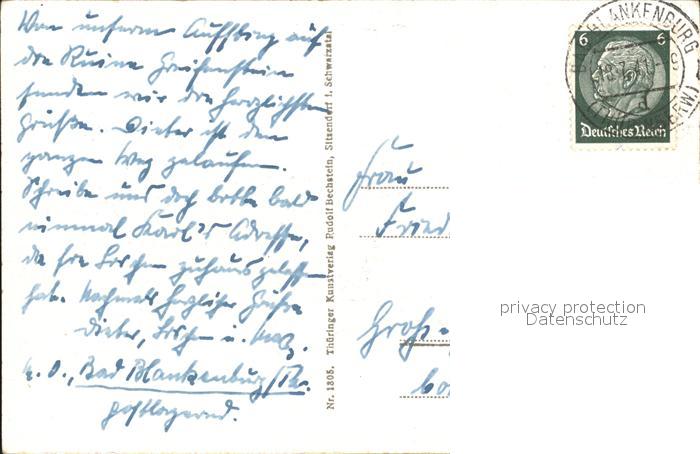 Von unserem Ausflug auf
die Ruine Greifenstein
senden wir die herzlichsten
Grüße. Dieter ist den
ganzen Weg gelaufen.
Schreibe uns doch bitte bald
einmal Karl's Adresse,
da sie Lorchen zuhaus gelassen
hat. Nochmals herzliche Grüße
Dieter, Lorchen u.
z. Z., Bad Blankenburg/Th.
postlagernd.
Nr. 1305. Thüringer Kunstverlag Rudolf Bechstein, Sitzendorf i. Schwarzatal
6 6
Deutsches Reich
BAD BLANKENBURG
Frau
Fried
Groß-
privacy protection
Datenschutz